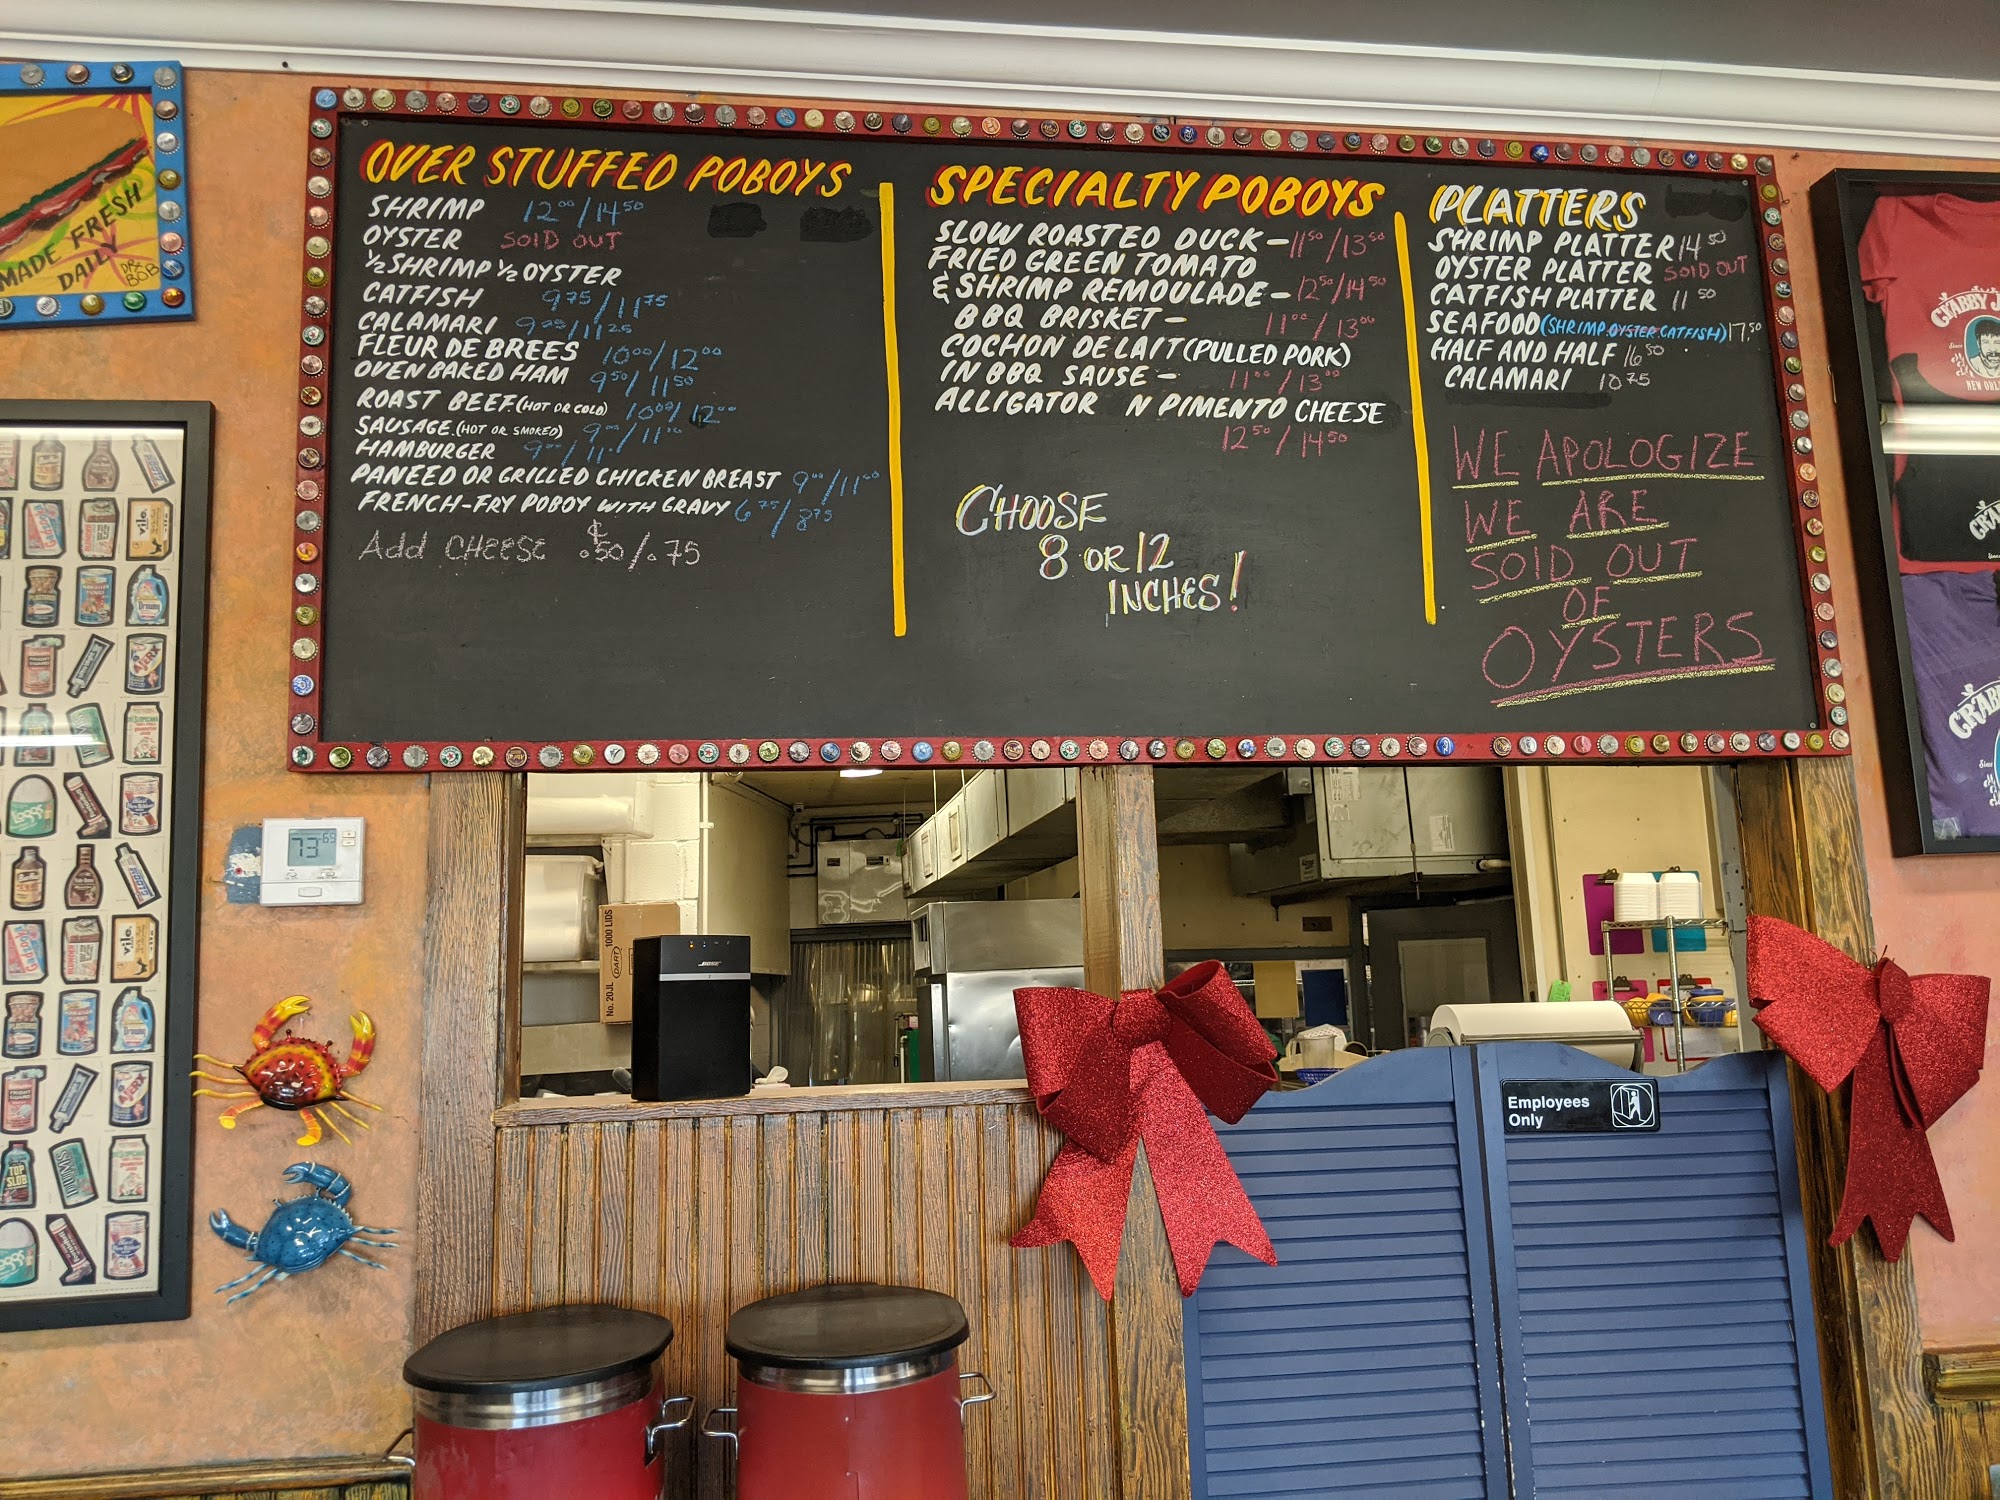 MADE FRESH
DAILY
DR. BOB
OVER STUFFED POBOYS
SHRIMP 12.00/14.50
OYSTER SOlD OUT
½ SHRIMP ½ OYSTER
CATFISH 9.75/11.75
CALAMARI 9.25/11.25
FLEUR DE BREES 10.00/12.00
OVEN BAKED HAM 9.50/11.50
ROAST BEEF.(HOT OR COLD) 10.00/12.00
SAUSAGE.(HOT OR SMOKED) 9.00/11.00
HAMBURGER 9.00/11.
PANEED OR GRILLED CHICKEN BREAST 9.00/11.00
FRENCH-FRY POBOY WITH GRAVY 6.75/8.75
Add CHEESE ¢.50/.75
SPECIALTY POBOYS
SLOW ROASTED DUCK - 11.50/13.50
FRIED GREEN TOMATO
& SHRIMP REMOULADE - 12.50/14.50
BBQ BRISKET - 11.00/13.00
COCHON DE LAIT (PULLED PORK)
IN BBQ SAUSE - 11.00/13.00
ALLIGATOR N PIMENTO CHEESE
12.50/14.50
CHOOSE
8 OR 12
INCHES!
PLATTERS
SHRIMP PLATTER 14.50
OYSTER PLATTER SOlD OUT
CATFISH PLATTER 11.50
SEAFOOD (SHRIMP.OYSTER.CATFISH) 17.50
HALF AND HALF 16.50
CALAMARI 10.75
WE APOLOGIZE
WE ARE
SOlD OUT
OF
OYSTERS
CRABBY J
Since
NEW ORL
CRA
Since
CRAB
Since
73 69
BOSE
No. 20JL DART 1000 LIDS
Employees
Only
vile.
Gadzooka
AJERX
TOP
SLOB